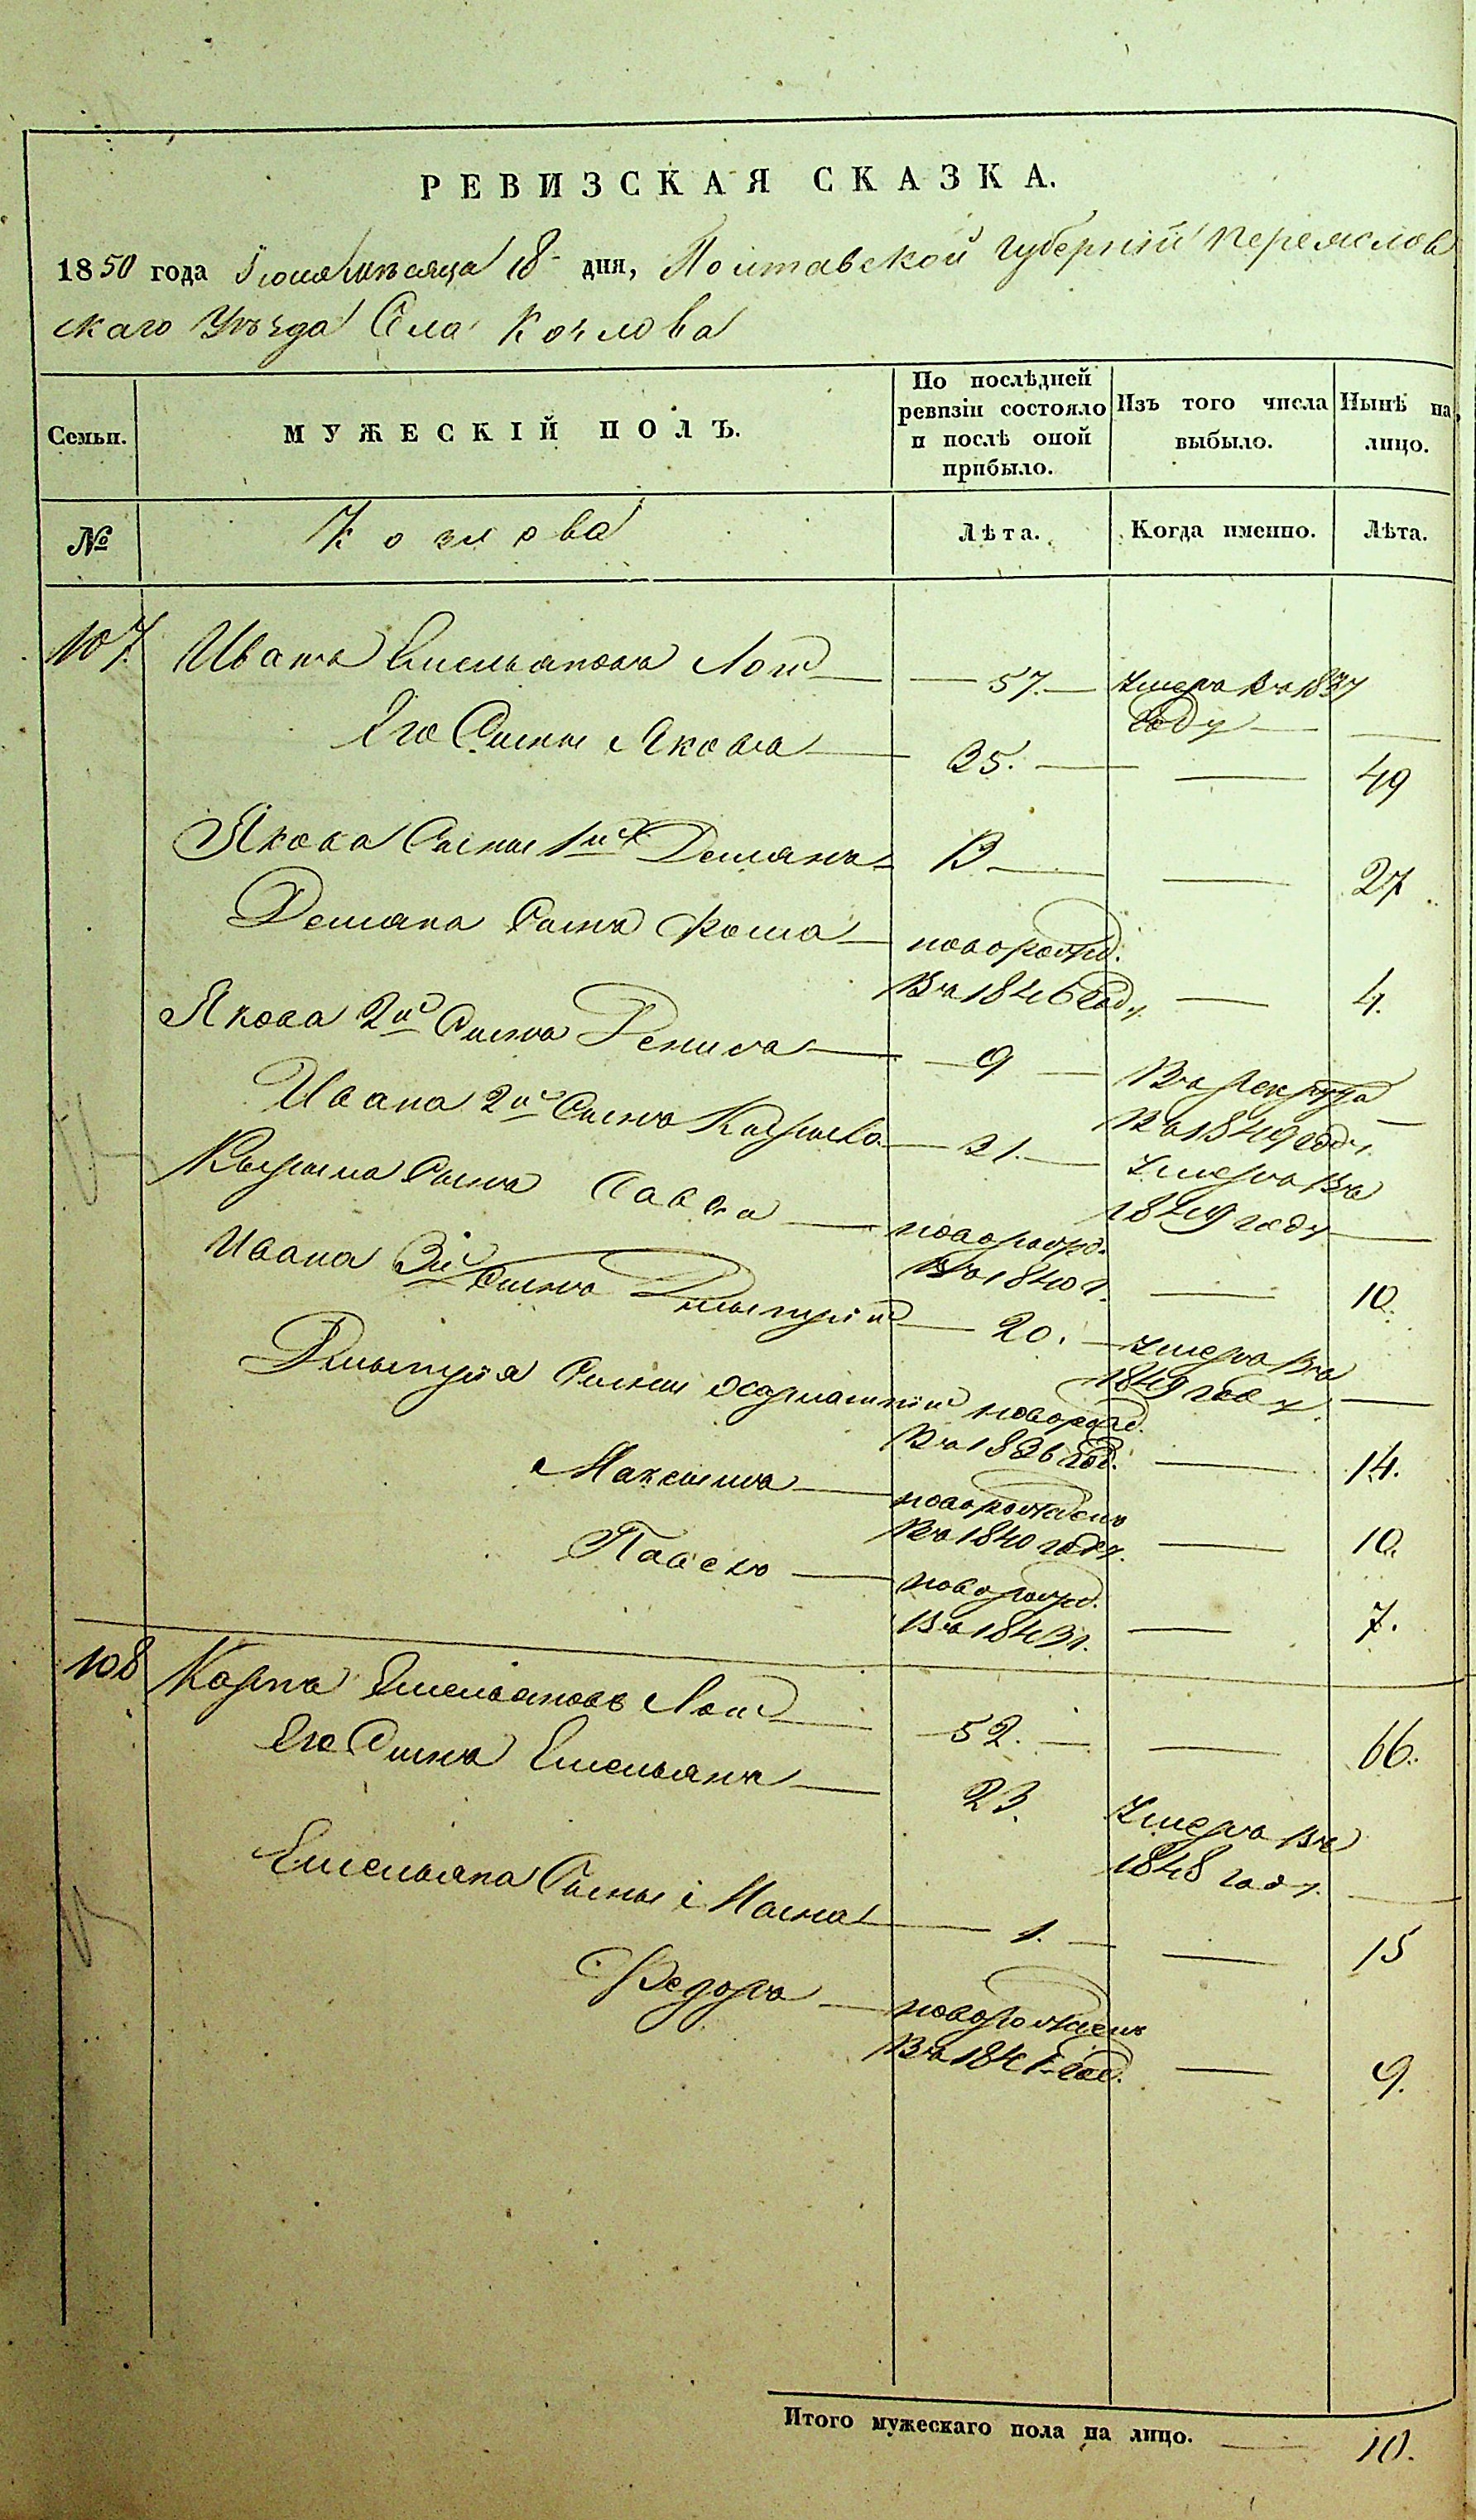 РЕВИЗСКАЯ СКАЗКА.
1850 года Іюня мѣсяца 18 дня, Полтавской губерніи Переяслов
скаго Уѣзда Села Козлова
Семьи.
МУЖЕСКІЙ ПОЛЪ.
По послѣдней
ревизіи состояло
и послѣ оной
прибыло.
Изъ того числа
выбыло.
Нынѣ на
лицо.
№
Козлова
Лѣта.
Когда именно.
Лѣта.
107. Иванъ Емельяновъ 57. Умеръ въ 1837
году
Его Сынъ Яковъ 35. 49
Якова Сыны 1й Демянъ 13 27
Демяна Сынъ Фома новорожд.
въ 1846 год. 4.
Якова 2й Сынъ Денисъ 9 въ рекрута
въ 1849 год.
Ивана 2й Сынъ 31. Умеръ въ
1849 году
Сынъ Савва новорожд.
въ 1840 г. 10.
Ивана 3й Сынъ Дмытрій 20. Умеръ въ
1849 году
Дмытрія Сыны новорожд.
въ 1836 год. 14.
Максимъ новорожденъ
въ 1840 году. 10.
Павелъ новорожд.
въ 1843 г. 7.
108 Карпъ Емельяновъ 52. 66.
Его Сынъ Емельянъ 23. Умеръ въ
1848 году.
Емельяна Сыны 1. 15
Федоръ новорожденъ
въ 1841 год. 9.
Итого мужескаго пола на лицо. 10.